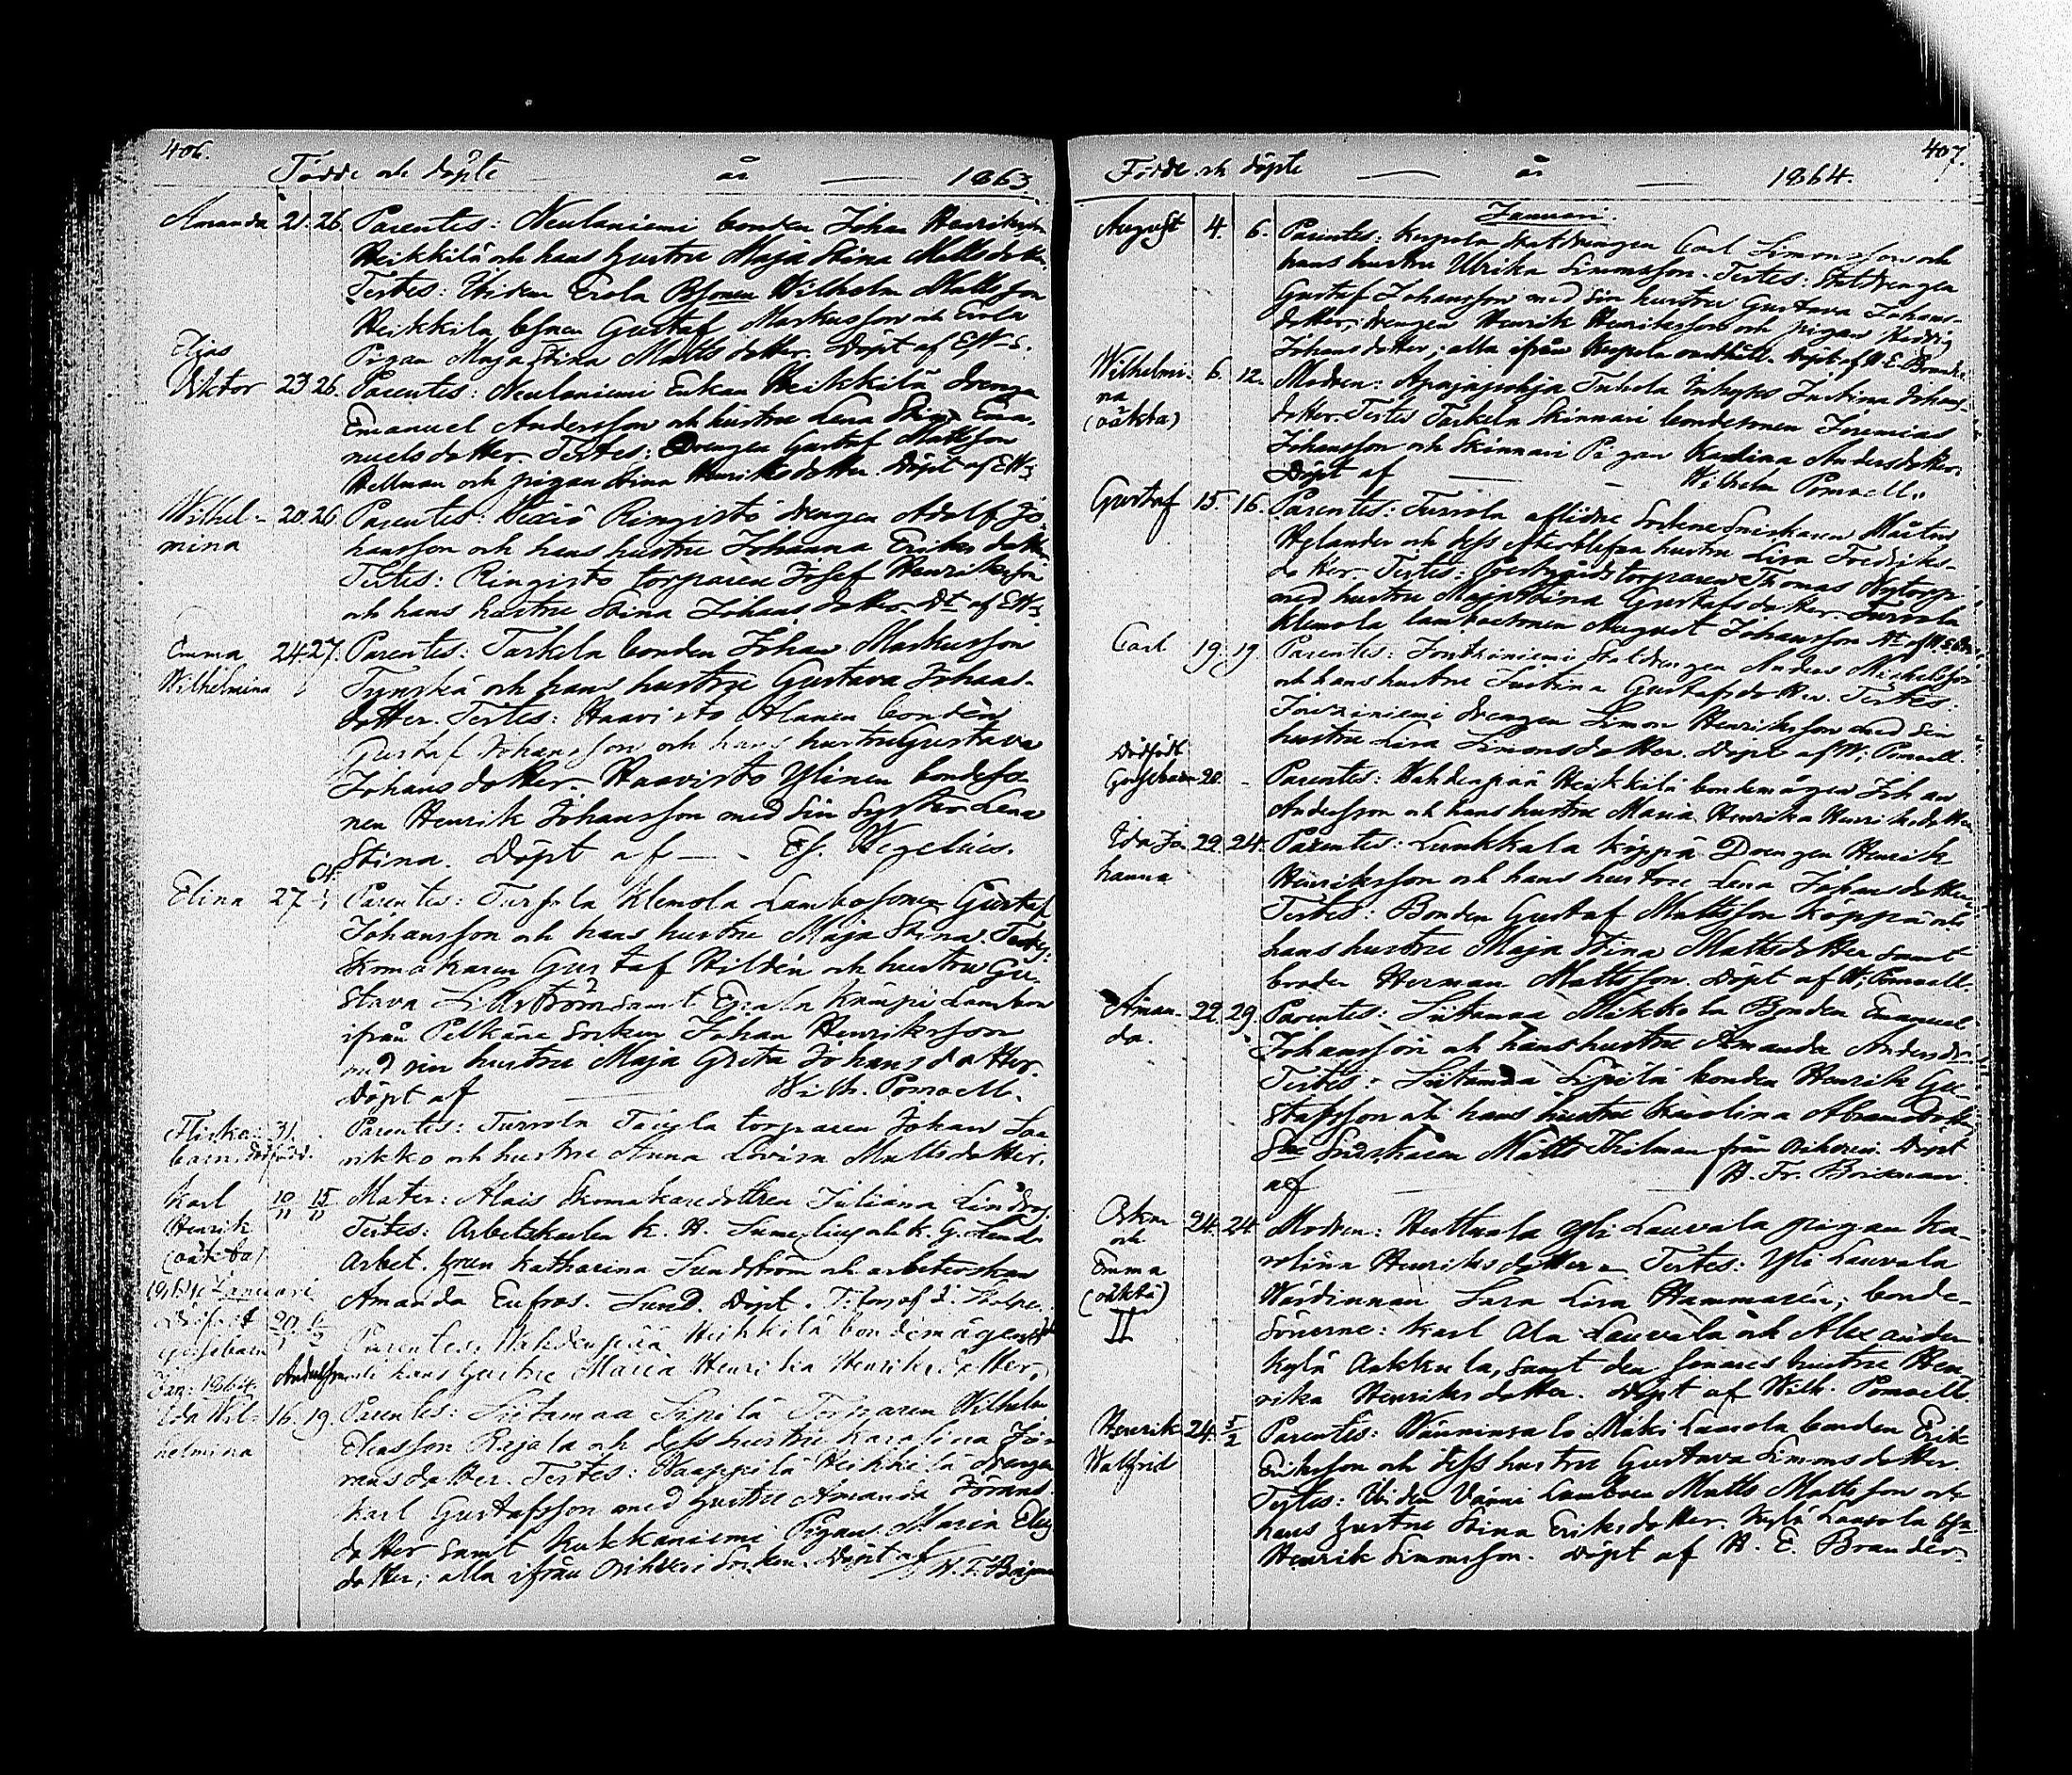 406.
Födde och döpte — år — 1863.
Amanda 21. 26. Parentes: Neulaniemi bonden Johan Henriksson
Heikkilä och hans hustru Maja Stina Mattsdotter.
Testes: Erola Bsonen Wilhelm Mattsson
Heikkilä bsonen Gustaf Markusson och Erola
Pigan Maja Stina Matts dotter. Döpt af EW-s.
Elias
Viktor 23. 26. Parentes: Neulaniemi Enkan Heikkilä drengen
Emanuel Andersson och hustru Lena Stina Ema-
nuelsdotter. Testes: Drengen Gustaf Mattsson
Hellman och pigan Stina Henriksdotter. Döpt af EW-s
Wilhel- 20. 26 Parentes: Ringisto drengen Adolf Jo-
mina hansson och hans hustru Johanna Eriks dotter
Testes: Ringisto torparen Josef Henriksson
och hans hustru Stina Johans dotter. Dt af EW-s
Emma 24. 27. Parentes: Tarkela bonden Johan Markusson
Wilhelmina Tynskä och hans hustru Gustava Johans-
dotter. Testes: Haavisto Alanen bonden
Gustaf Johansson och hans hustru Gustava
Johansdotter. Haavisto Ylinen bondeso-
nen Henrik Johansson med sin syster Lena
Stina. Döpt af — Ef. Wegelius.
64.
Elina 27 Parentes: Tursola Klemola Lambosonen Gustaf
Johansson och hans hustru Maja Stina. Testes:
Skomakaren Gustaf Hildén och hustru Gu-
stava Lillström samt Eerala Kämpi Lambon
ifrån Pelkäne Socken Johan Henriksson
med sin hustru Maja Greta Johansdotter.
Döpt af — Wilh. Pomoell.
Flicka- 31. Parentes: Tursola torparen Johan
barn. dödfödd. och hustru Anna Lovisa Mattsdotter.
Karl 10/11 15/11 Mater: Alais Skomakaredottren Juliana
Henrik Testes: Arbetskarlen K. H. och K. G.
(oäkta) Arbet. Katharina Sundström och
1864. Januari Amanda Eufros. Lund. Döpt
Dödfödt 20. Parentes: Wahdenpää Heikkilä bondemågen Joh
gossebarn Andersson och hans hustru Maria Henrika Henriksdotter.
Jan. 1864.
Ida Wil- 16. 19. Parentes: Liitamaa Sipilä Torparen Wilhelm
helmina Eliasson Rejola och dess hustru Karolina Jö-
ransdotter. Testes: Heikkilä drengen
Karl Gustafsson med hustru Amanda Jörans-
dotter samt Kukkaniemi Pigan Maria Elias
dotter; alla ifrån Orihvesi Socken. Döpt af H. F.
407.
Födde och döpte — år — 1864.
Januari.
August 4. 6. Parentes: Kuppola statdrengen Carl Simonsson och
hans hustru Ulrika Simonsson. Testes: Statdrengen
Gustaf Johansson med sin hustru Gustava Johans-
dotter; drengen Henrik Henriksson och pigan Hedvig
Johansdotter; alla ifrån Döpt af H. E. Brander
Wilhelmi- 6. 12. Modren: Tuhola Inhyses Justina Johans-
na dotter. Testes Tarkela Skinnari bondesonen Jeremias
(oäkta) Johansson och Skinnari Pigan Karolina Andersdotter.
Döpt af — Wilhelm Pomoell.
Gustaf 15. 16. Parentes: Tursola aflidne Sockne Snickaren Mårten
Hylander och dess efterblefna hustru Lisa Fredriks-
dotter. Testes: torparen Thomas Nytorp
med hustru Maja Stina Gustafsdotter. Tursola
Klemola lambosonen August Johansson
Carl 19. 19. Parentes: Statdrengen Anders Michelsson
och hans hustru Justina Gustafsdotter. Testes:
drengen Simon Henriksson med sin
hustru Lisa Simonsdotter. Döpt af W. Pomoell.
Dödfödt
Gossebarn 20. - Parentes: Wahdenpää Heikkilä bondemågen Johan
Andersson och hans hustru Maria Henrika Henriksdotter
Ida Jo- 22. 24. Parentes: Lunkkala Köppä Drengen Henrik
hanna Henriksson och hans hustru Lena Johansdotter
Testes: Bonden Gustaf Mattsson Köppä och
hans hustru Maja Stina Mattsdotter samt
broder Herman Mattsson. Döpt af W. Pomoell.
Aman- 22. 29. Parentes: Liitamaa Mikkola Bonden Emanuel
da. Johansson och hans hustru Amanda Andersdr
Testes: Liitamaa Sipilä bonden Henrik Gu-
stafsson och hans hustru Karolina Abramsdotter
Matts Hilman från Orihvesi. Döpt
af — H. Fr.
Oskar 24. 24 Modren: Huttuala Yli Lauvala pigan Ka-
och rolina Henriksdotter. Testes: Yli Lauvala
Emma Wärdinnan Sara Lisa Hammarén; bonde-
(oäkta) sönerne: Karl Ala Lauvala och Alexander
II Kylä Aakkula, samt den senares hustru Hen-
rika Henriksdotter. Döpt af Wilh. Pomoell.
Henrik 24. 5/2 Parentes: Mäki Laurola bonden Erik
Walfrid Eriksson och dess hustru Gustava Simonsdotter.
Testes: Lambon Matts Mattsson och
hans hustru Stina Eriksdotter. Kylä Laurola bsn.
Henrik Simonsson. Döpt af H. E. Brander.